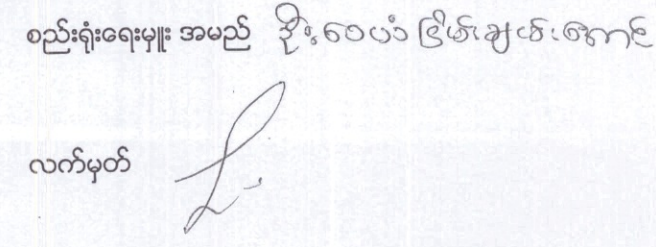 စည်းရုံးရေးမှူး အမည် ဦးဝေယံငြိမ်းချမ်းအောင်
လက်မှတ်